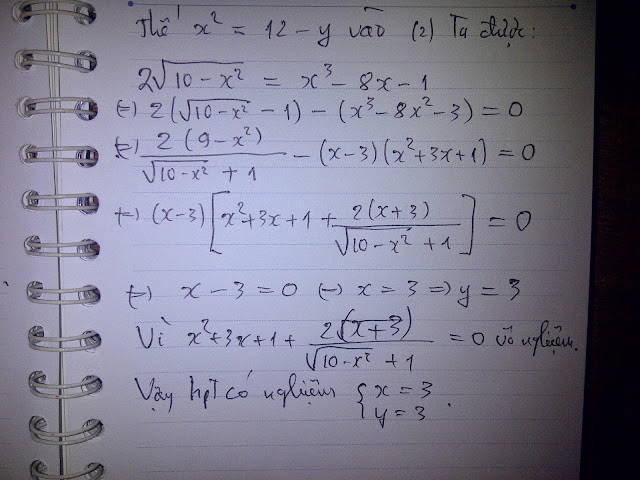 Thế x² = 12 - y vào (2) Ta được:
2√(10 - x²) = x³ - 8x - 1
(=) 2(√(10 - x²) - 1) - (x³ - 8x² - 3) = 0
(=) 2(9 - x²)/(√(10 - x²) + 1) - (x - 3)(x² + 3x + 1) = 0
(=) (x - 3)[x² + 3x + 1 + 2(x + 3)/(√(10 - x²) + 1)] = 0
(=) x - 3 = 0 (=) x = 3 => y = 3
Vì x² + 3x + 1 + 2√(x + 3)/(√(10 - x²) + 1) = 0 vô nghiệm.
Vậy hpt có nghiệm { x = 3
y = 3 .